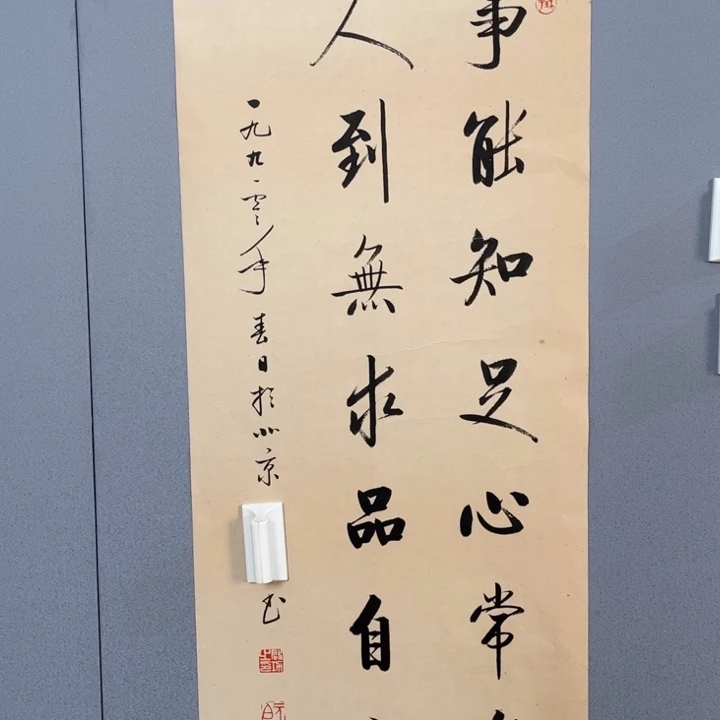 事能知足心常
人到無求品自
一九九零年春日於北京
书